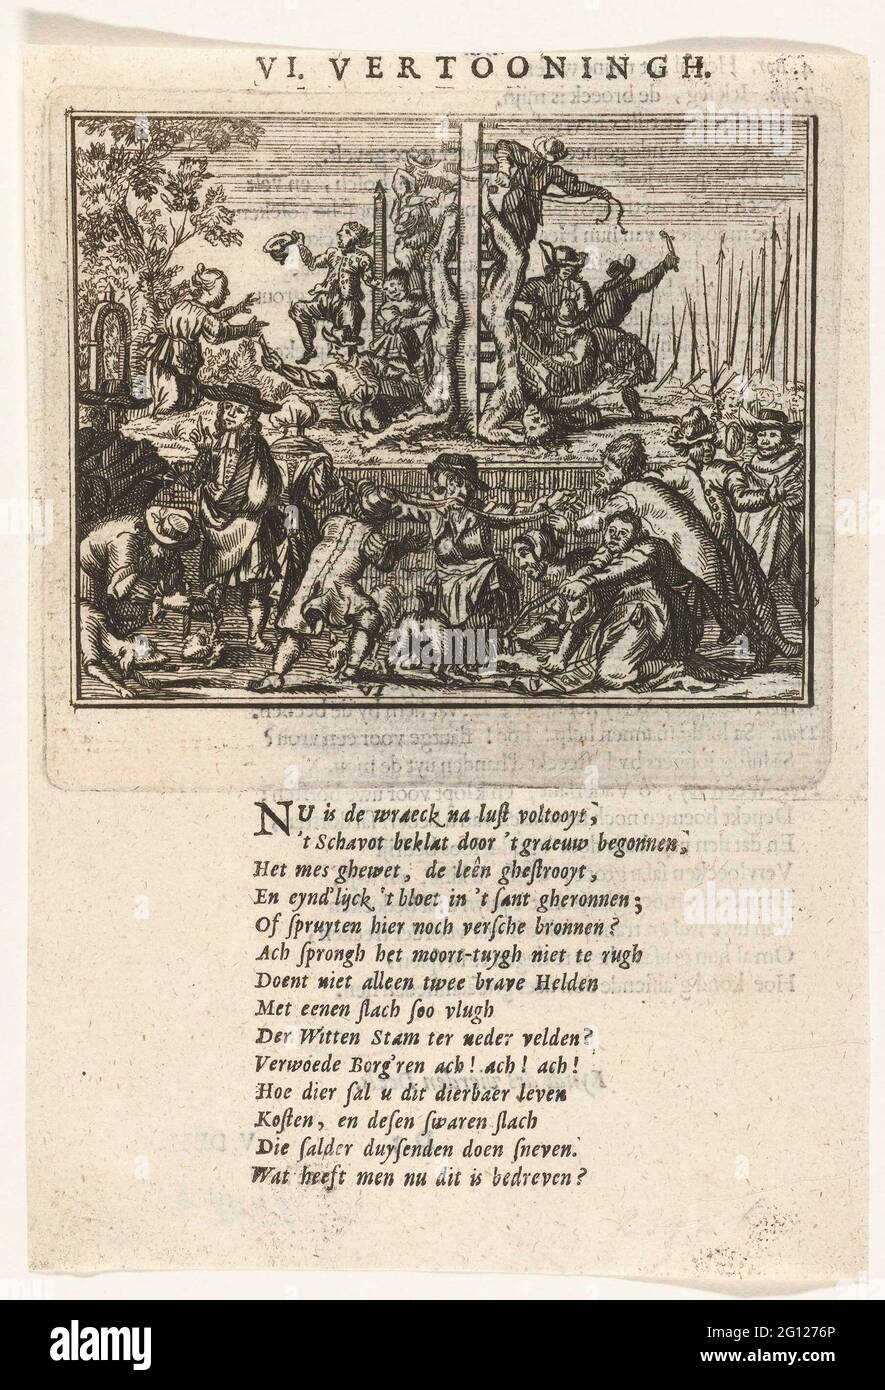 VI. VERTOONINGH.
NU is de wraeck na lust voltooyt,
't Schavot beklat door 't graeuw begonnen,
Het mes ghewet, de leên ghestrooyt,
En eynd'lijck 't bloet in 't sant gheronnen;
Of spruyten hier noch versche bronnen?
Ach sprongh het moort-tuygh niet te rugh
Doent niet alleen twee brave Helden
Met eenen slach soo vlugh
Der Witten Stam ter neder velden?
Verwoede Borg'ren ach! ach! ach!
Hoe dier sal u dit dierbaer leven
Kosten, en desen swaren slach
Die salder duysenden doen sneven.
Wat heeft men nu dit is bedreven?
alamy
Image ID: 2G1276P
www.alamy.com